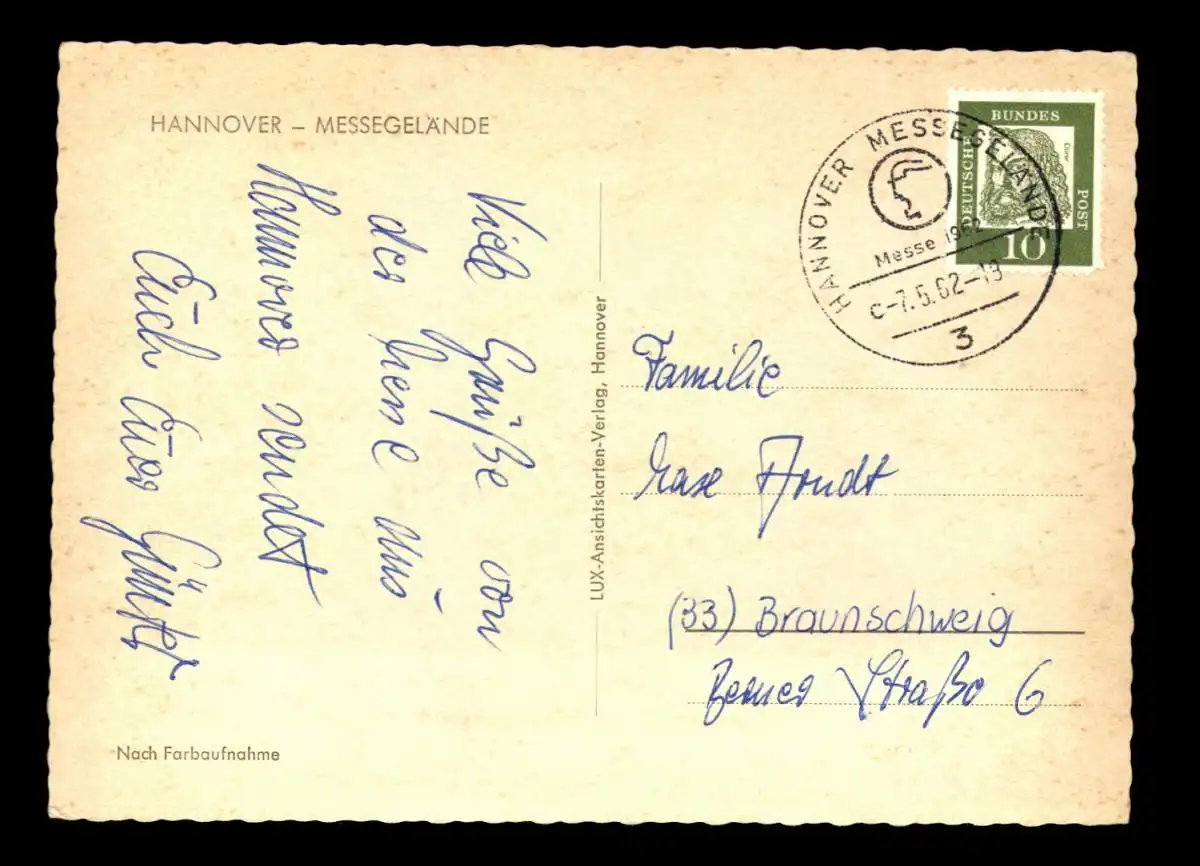 HANNOVER – MESSEGELÄNDE
Viele Grüße von
der Messe aus
Hannover sendet
Euch Euer Günter
Nach Farbaufnahme
LUX-Ansichtskarten-Verlag, Hannover
HANNOVER MESSEGELÄNDE
Messe 1962
C-7.5.62-19
3
DEUTSCHE BUNDES POST
Dürer
10
Familie
Arndt
(33) Braunschweig
Berner Straße 6